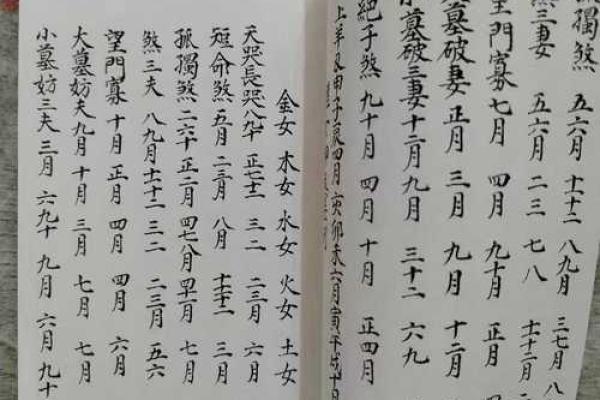 獨煞 五六月 十十二 八九月 三七月
煞三妻 五六月 二三 七八 十十二月
門寡 七月 四月 九十月 正月
墓破妻 正月 三月 九月 十二月
小墓破三妻 十二月 九月 三十二 六九
絕子煞 九十月 四月 十月 正四月
上羊及甲子辰四月 亥卯未六月 寅午戌十月
金女 木女 水女 火女 土女
天哭長哭 八九十 正七十二 三二 二三月 六月
短命煞 五月 二三月 八月 三月
孤獨煞 二六十 正二月 四七八月 七月
煞三夫 八九月 十十二 三二 二三月 五六
望門寡 十月 正月 四月 四月 六月
大墓妨夫 九月 十月 三月 七月 七月
小墓妨三夫 三月 六九十 九月 六月 九十